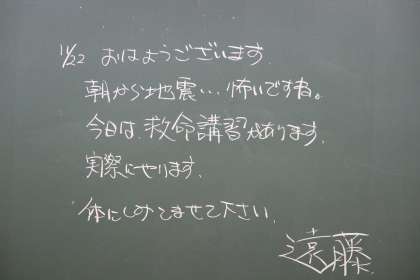 11/22 おはようございます.
朝から地震…怖いですね。
今日は、救命講習があります.
実際にやります.
体にしみこませて下さい.
遠藤